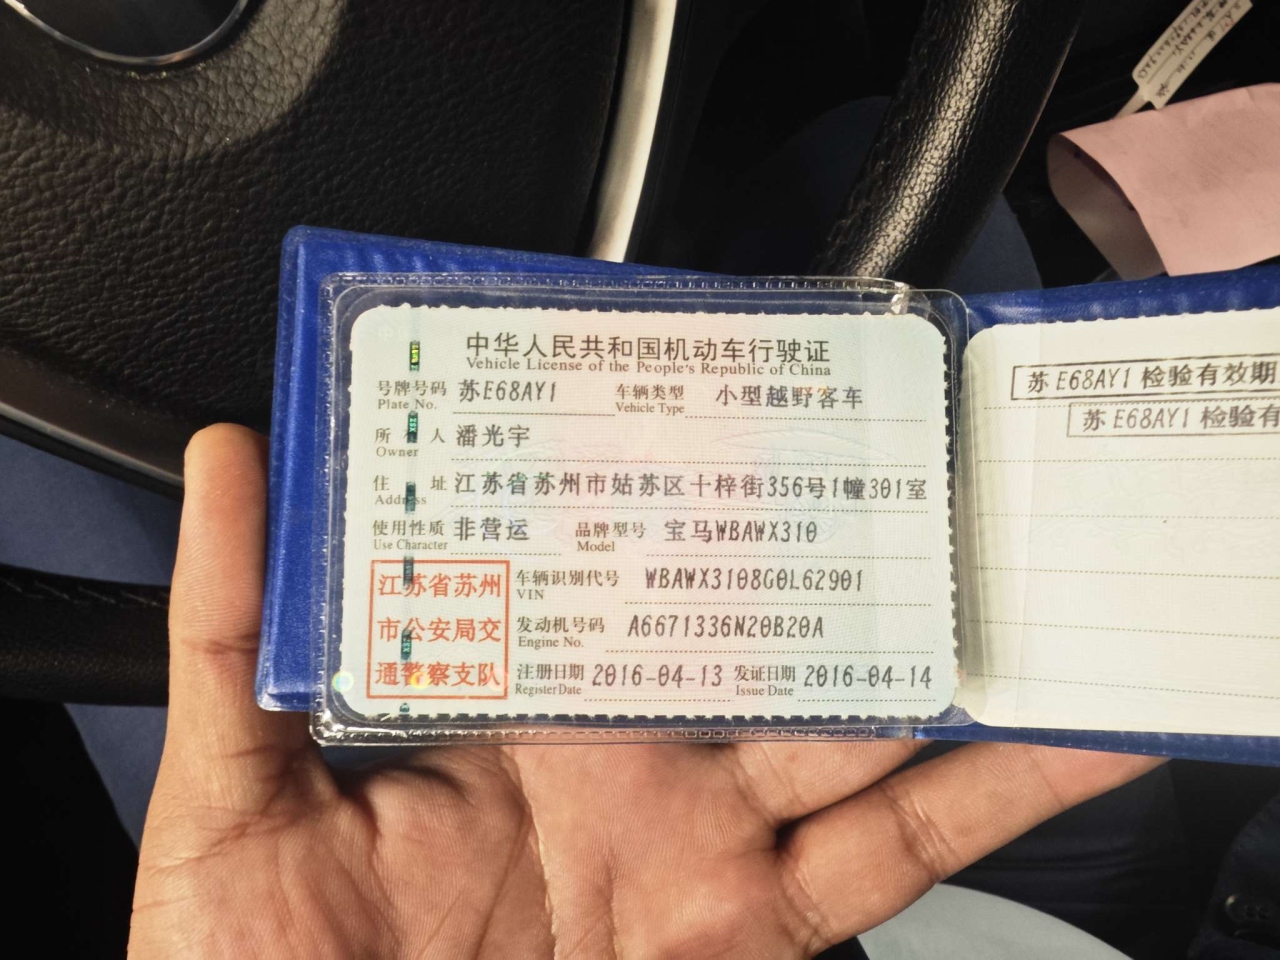 中华人民共和国机动车行驶证
Vehicle License of the People's Republic of China
号牌号码 苏E68AY1 车辆类型 小型越野客车
Plate No. Vehicle Type
所有人 潘光宇
Owner
住址 江苏省苏州市姑苏区十梓街356号1幢301室
Address
使用性质 非营运 品牌型号 宝马WBAWX310
Use Character Model
江苏省苏州
市公安局交
通警察支队
车辆识别代号 WBAWX3108G0L62901
VIN
发动机号码 A6671336N20B20A
Engine No.
注册日期 2016-04-13 发证日期 2016-04-14
Register Date Issue Date
苏E68AY1 检验有效期
苏E68AY1 检验有